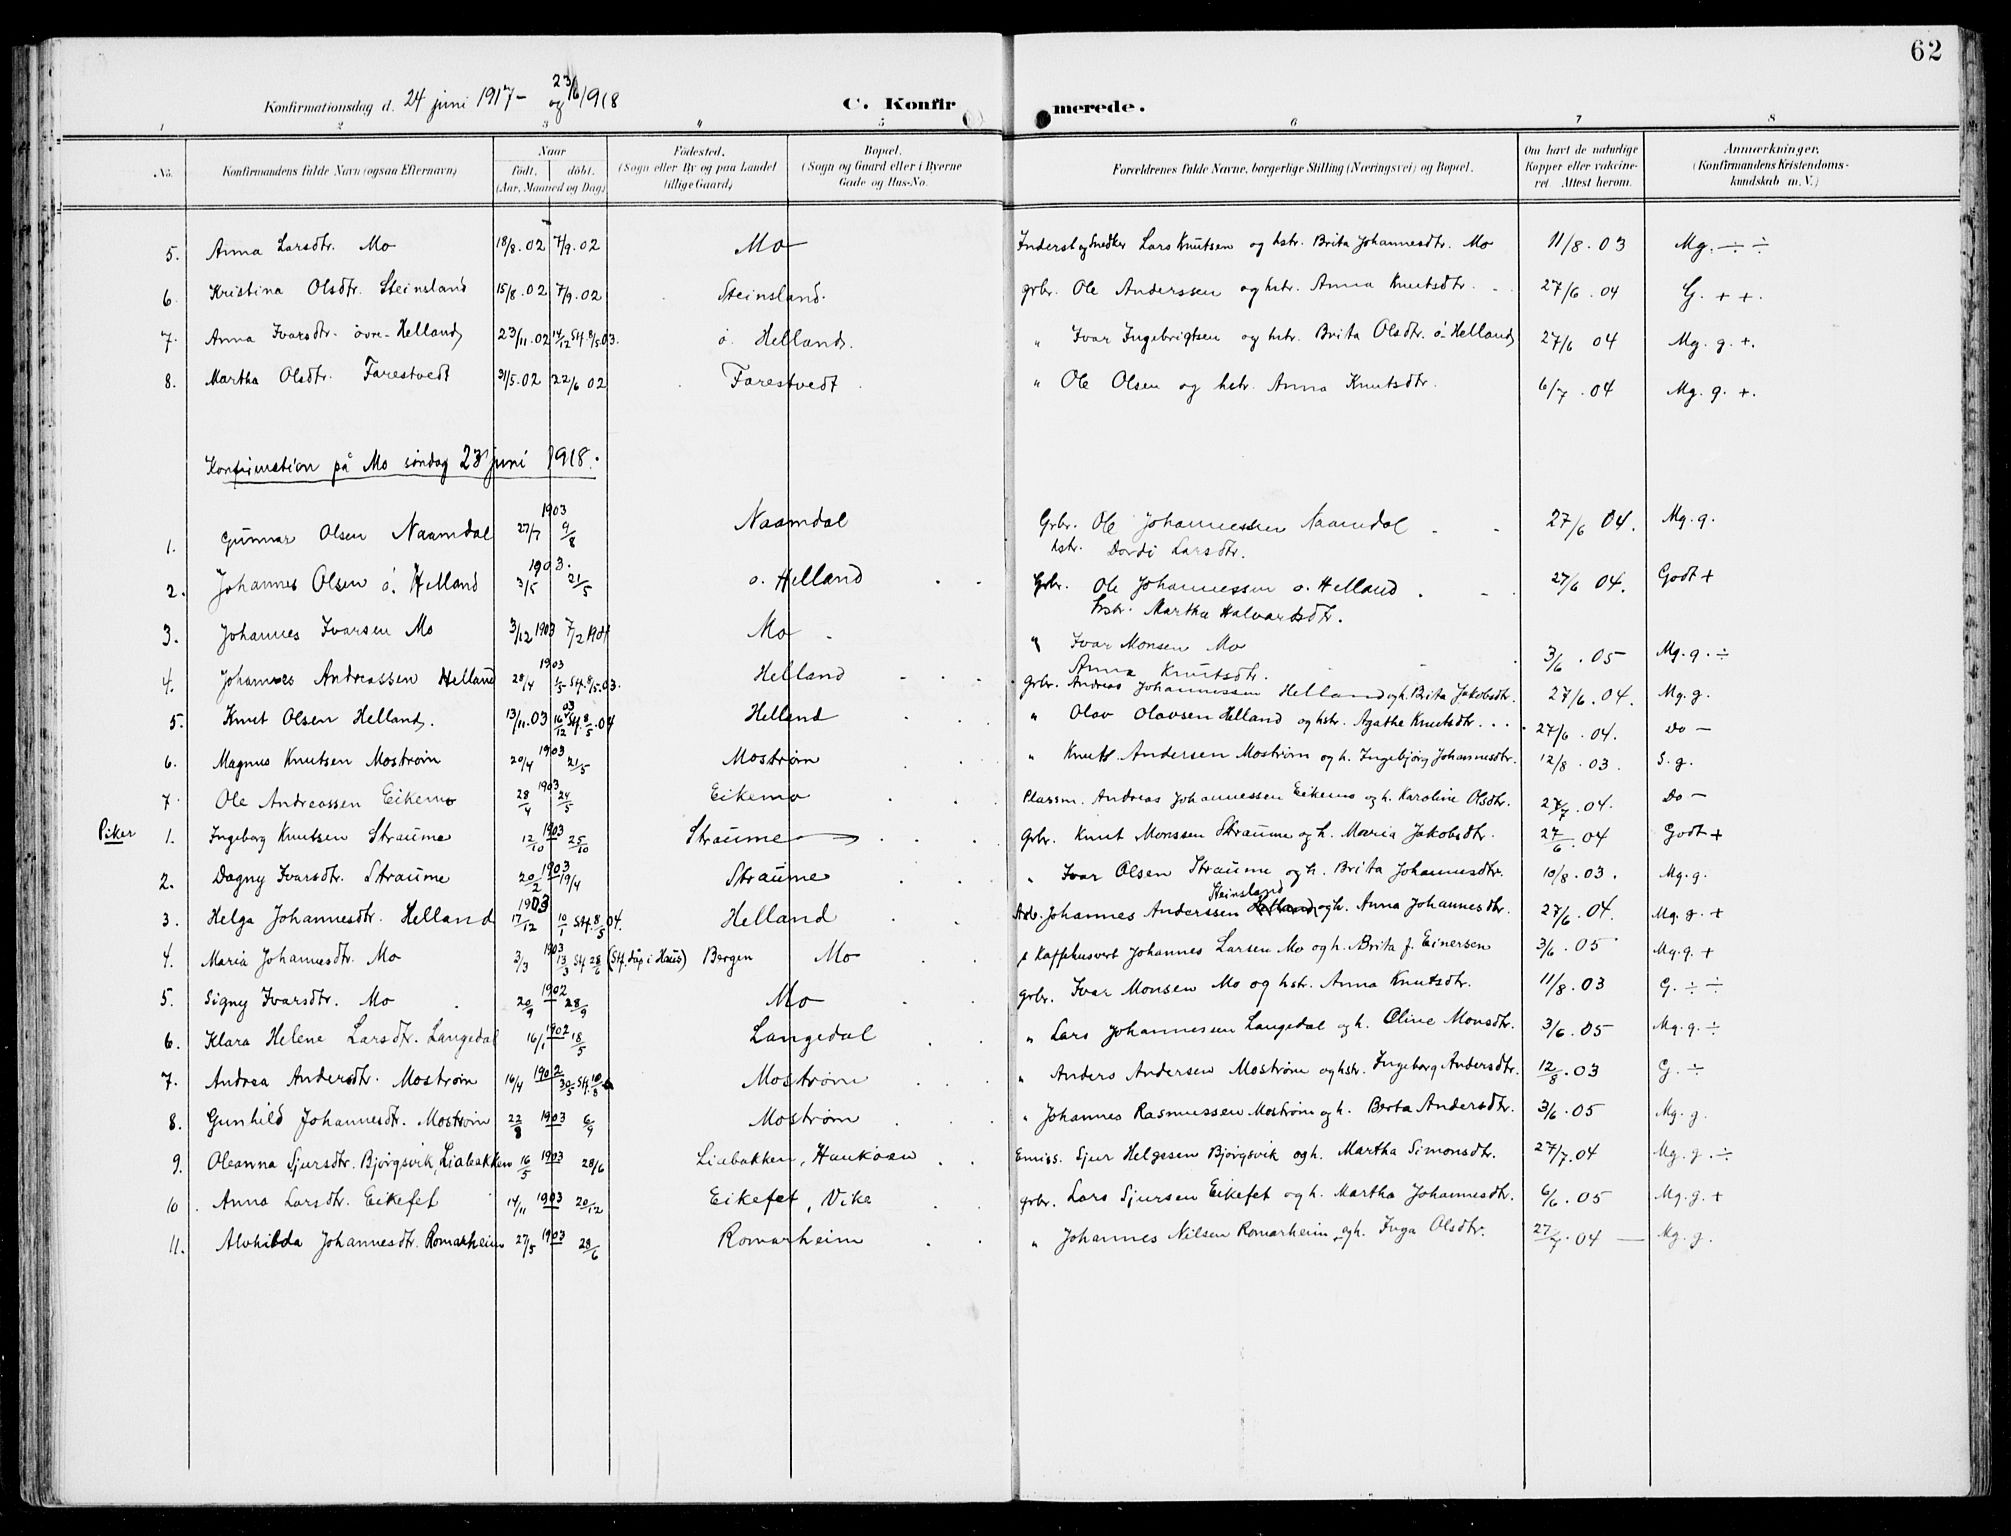 62
Konfirmationsdag d. 24 juni 1917 - og 23/6 1918 C. Konfirmerede.
1 2 3 " 5 6 7 8
No. Konfirmandens fulde Navn (ogsaa Efternavn) Naar født, døbt. (Aar, Maaned og Dag) Fødested. (Sogn eller By og paa Landet tillige Gaard) Bopæl. (Sogn og Gaard eller i Byerne Gade og Hus-No. Forældrenes fulde Navne, borgerlige Stilling (Næringsvei) og Bopæl. Om havt de naturlige Kopper eller vakcineret. Attest herom. Anmærkninger. (Konfirmandens Kristendomskundskab m. V.)
5. Anna Larsdtr. Mo 18/8.02 7/9.02 Mo Inderst og Snedker Lars Knutsen og hstr. Brita Johannesdtr. Mo 11/8.03 Mg. ÷ ÷
6. Kristina Olsdtr. Steinsland 15/8.02 7/9.02 Steinsland. grbr. Ole Anderssen og hstr. Anna Knutsdtr. 27/6.04 G. + +.
7. Anna Ivarsdtr. øvre-Helland 23/11.02 14/12 Stf. 8/5.03. ø. Helland. " Ivar Ingebrigtsen og hstr. Brita Olsdtr. ø. Helland 27/6 04 Mg. g. +.
8. Martha Olsdtr. Farestvedt 31/5.02 22/6 02 Farestvedt " Ole Olsen og hstr. Anna Knutsdtr. 6/7.04 Mg. g. +.
Konfirmation på Mo søndag 23 juni 1918.
1903
1. Gunnar Olsen Naamdal 27/7 9/8 Naamdal Grbr. Ole Johannessen Naamdal 27/6 04. Mg. g.
hstr. Dordi Larsdtr.
1903.
2. Johannes Olsen ø. Helland 3/5 21/5 ø. Helland Grbr. Ole Johannessen ø. Helland 27/6 04. Godt +
hstr. Martha Halvarsdtr.
3. Johannes Ivarsen Mo 3/12 1903 7/2 1904 Mo " Ivar Monsen Mo 3/6.05 Mg. g. ÷
Anna Knutsdtr.
4. Johannes Andreassen Helland 28/4 1903 1/5 Stf. 8/5.03. Helland grbr. Andreas Johannessen Helland og h. Brita Jakobsdtr. 27/6.04. Mg. g.
5. Knut Olsen Helland. 13/11.03 16/12 03 Stf. 8/5.04 Helland " Olav Olavsen Helland og hstr. Agathe Knutsdtr. 27/6.04. Do –
6. Magnus Knutsen Mostrøm 20/4 1903 21/5 Mostrøm " Knut Andersen Mostrøm og h. Ingebjørg Johannesdtr. 12/8.03. S. g.
7. Ole Andreassen Eikemo 28/4 1903 24/5 Eikemo Plassm. Andreas Johannessen Eikemo og h. Karoline Olsdtr. 27/7.04. Do –
Piker 1. Ingeborg Knutsen Straume 12/10 1903 25/10 Straume Grbr. Knut Monssen Straume og h. Maria Jakobsdtr. 27/6.04 Godt +
2. Dagny Ivarsdtr. Straume 20/2 1903 19/4 Straume " Ivar Olsen Straume og h. Brita Johannesdtr. 10/8.03. Mg. g.
Steinsland
3. Helga Johannesdtr. Helland 17/12 1903 10/1 Stf. 8/5 04. Helland Arb. Johannes Anderssen Helland og h. Anna Johannesdtr. 27/6.04. Mg. g. +
4. Maria Johannesdtr. Mo 3/3 1903 13/3 Stf 28/6 (Stf. dåp i Haus) Bergen Mo Kaffehusvert Johannes Larsen Mo og h. Brita f. Einersen 3/6.05 Mg. g. +
5. Signy Ivarsdtr. Mo 20/9 1902 28/9 Mo grbr. Ivar Monsen Mo og hstr. Anna Knutsdtr. 11/8.03 G. ÷ ÷
6. Klara Helene Larsdtr. Langedal 16/1 1902 18/5 Langedal " Lars Johannesen Langedal og h. Oline Monsdtr. 3/6.05 Mg. g. ÷
7. Andrea Andersdtr. Mostrøm 16/4 1902 30/5 Stf. 10/8 Mostrøm " Anders Andersen Mostrøm og hstr. Ingeborg Andersdtr. 12/8.03 G. ÷
8. Gunhild Johannesdtr. Mostrøm 22/8 1903 6/9 Mostrøm " Johannes Rasmussen Mostrøm og h. Berta Andersdtr. 3/6.05 Mg. g.
9. Oleanna Sjursdtr. Bjørgsvik, Liabakken 16/5 1903 28/6 Liabakken, Haukaas Emiss. Sjur Helgesen Bjørgsvik og h. Martha Simonsdtr. 27/7.04 Mg. g. ÷
10. Anna Larsdtr. Eikefet 14/11 1903 20/12 Eikefet, Vike grbr. Lars Sjursen Eikefet og h. Martha Johannesdtr. 6/6.05 Mg. g. +
11. Alvhilda Johannesdtr. Romarheim 27/5 1903 28/6 Romarheim " Johannes Nilsen Romarheim og h. Inga Olsdtr. 27/7.04 – Mg. g.